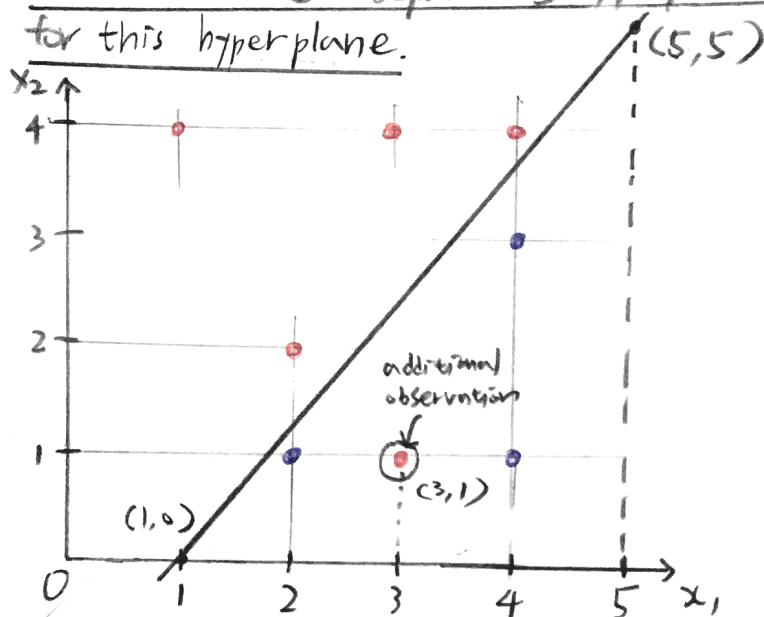 for this hyperplane.
(5,5)
x₂
4
3
2
additional
observation
1
(3,1)
(1,0)
0
1
2
3
4
5
x₁